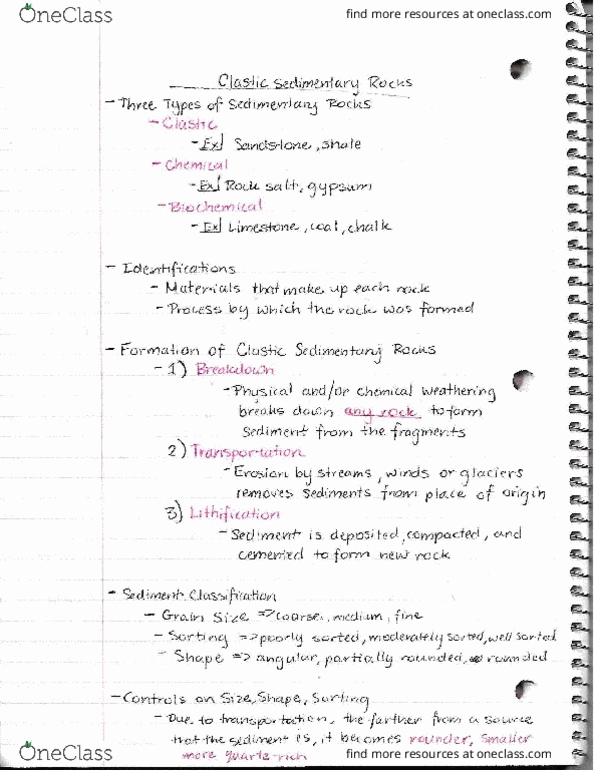 OneClass find more resources at oneclass.com
Clastic Sedimentary Rocks
- Three Types of Sedimentary Rocks
- Clastic
- Ex] Sandstone, shale
- Chemical
- Ex] Rock salt, gypsum
- Biochemical
- Ex] Limestone, coal, chalk
- Identifications
- Materials that make up each rock
- Process by which the rock was formed
- Formation of Clastic Sedimentary Rocks
- 1) Breakdown
- Physical and/or chemical weathering
breaks down any rock to form
sediment from the fragments
2) Transportation
- Erosion by streams, winds or glaciers
removes sediments from place of origin
3) Lithification
- Sediment is deposited, compacted, and
cemented to form new rock
- Sediment Classification
- Grain Size => coarse, medium, fine
- Sorting => poorly sorted, moderately sorted, well sorted
- Shape => angular, partially rounded, rounded
- Controls on Size, Shape, Sorting
- Due to transportation, the farther from a source
that the sediment is, it becomes rounder, smaller
more quartz-rich
OneClass find more resources at oneclass.com